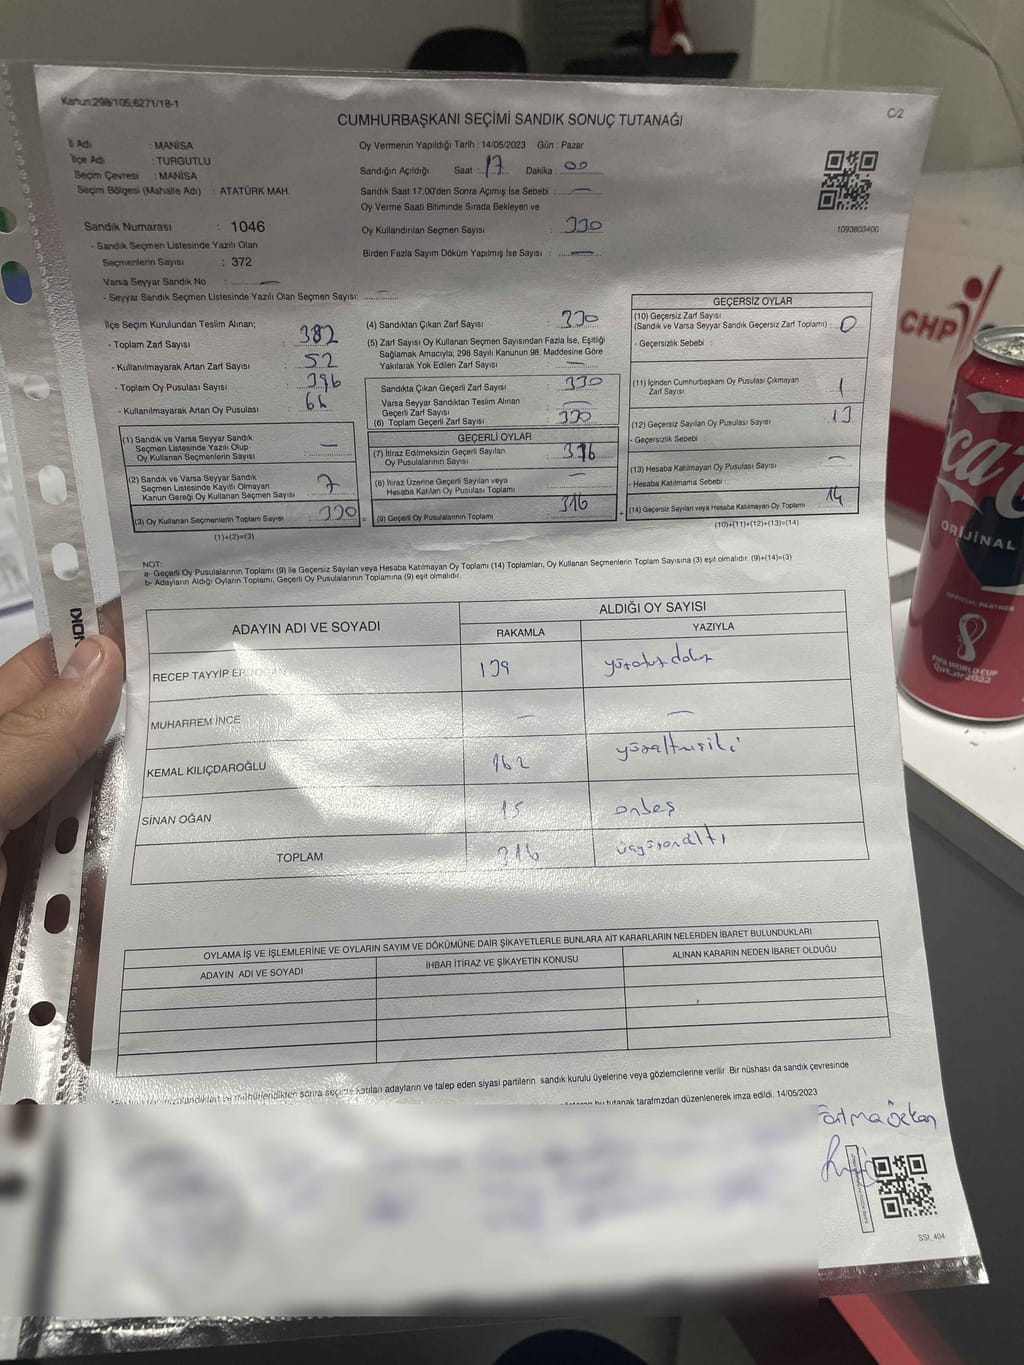 Kanun:298/105;6271/18-1
C/2
CUMHURBAŞKANI SEÇİMİ SANDIK SONUÇ TUTANAĞI
İl Adı : MANİSA
İlçe Adı : TURGUTLU
Seçim Çevresi : MANİSA
Seçim Bölgesi (Mahalle Adı) : ATATÜRK MAH.
Oy Vermenin Yapıldığı Tarih : 14/05/2023 Gün : Pazar
Sandığın Açıldığı Saat : 17 Dakika : 00
Sandık Saat 17:00'den Sonra Açımış İse Sebebi : —
Oy Verme Saati Bitiminde Sırada Bekleyen ve
Oy Kullandırılan Seçmen Sayısı : 330
Birden Fazla Sayım Döküm Yapılmış İse Sayısı : —
1093803400
Sandık Numarası : 1046
- Sandık Seçmen Listesinde Yazılı Olan
Seçmenlerin Sayısı : 372
Varsa Seyyar Sandık No : —
- Seyyar Sandık Seçmen Listesinde Yazılı Olan Seçmen Sayısı: —
İlçe Seçim Kurulundan Teslim Alınan;
- Toplam Zarf Sayısı : 382
- Kullanılmayarak Artan Zarf Sayısı : 52
- Toplam Oy Pusulası Sayısı : 396
- Kullanılmayarak Artan Oy Pusulası :
(1) Sandık ve Varsa Seyyar Sandık
Seçmen Listesinde Yazılı Olup
Oy Kullanan Seçmenlerin Sayısı : —
(2) Sandık ve Varsa Seyyar Sandık
Seçmen Listesinde Kayıtlı Olmayan
Kanun Gereği Oy Kullanan Seçmen Sayısı : 7
(3) Oy Kullanan Seçmenlerin Toplam Sayısı : 330
(1)+(2)=(3)
(4) Sandıktan Çıkan Zarf Sayısı : 330
(5) Zarf Sayısı Oy Kullanan Seçmen Sayısından Fazla İse, Eşitliği
Sağlamak Amacıyla; 298 Sayılı Kanunun 98. Maddesine Göre
Yakılarak Yok Edilen Zarf Sayısı : —
Sandıkta Çıkan Geçerli Zarf Sayısı : 330
Varsa Seyyar Sandıktan Teslim Alınan
Geçerli Zarf Sayısı : —
(6) Toplam Geçerli Zarf Sayısı : 330
GEÇERLİ OYLAR
(7) İtiraz Edilmeksizin Geçerli Sayılan
Oy Pusulalarının Sayısı : 316
(8) İtiraz Üzerine Geçerli Sayılan veya
Hesaba Katılan Oy Pusulası Toplamı : —
(9) Geçerli Oy Pusulalarının Toplamı : 316
GEÇERSİZ OYLAR
(10) Geçersiz Zarf Sayısı
(Sandık ve Varsa Seyyar Sandık Geçersiz Zarf Toplamı) : 0
- Geçersizlik Sebebi :
(11) İçinden Cumhurbaşkanı Oy Pusulası Çıkmayan
Zarf Sayısı : 1
(12) Geçersiz Sayılan Oy Pusulası Sayısı : 13
- Geçersizlik Sebebi :
(13) Hesaba Katılmayan Oy Pusulası Sayısı : —
- Hesaba Katılmama Sebebi :
(14) Geçersiz Sayılan veya Hesaba Katılmayan Oy Toplamı : 14
(10)+(11)+(12)+(13)=(14)
NOT:
a- Geçerli Oy Pusulalarının Toplamı (9) ile Geçersiz Sayılan veya Hesaba Katılmayan Oy Toplamı (14) Toplamları, Oy Kullanan Seçmenlerin Toplam Sayısına (3) eşit olmalıdır. (9)+(14)=(3)
b- Adayların Aldığı Oyların Toplamı, Geçerli Oy Pusulalarının Toplamına (9) eşit olmalıdır.
ADAYIN ADI VE SOYADI
ALDIĞI OY SAYISI
RAKAMLA YAZIYLA
RECEP TAYYİP ERDOĞAN 139 yüzotuzdokuz
MUHARREM İNCE — —
KEMAL KILIÇDAROĞLU 162 yüzaltmışiki
SİNAN OĞAN 15 onbeş
TOPLAM 316 üçyüzonaltı
OYLAMA İŞ VE İŞLEMLERİNE VE OYLARIN SAYIM VE DÖKÜMÜNE DAİR ŞİKAYETLERLE BUNLARA AİT KARARLARIN NELERDEN İBARET BULUNDUKLARI
ADAYIN ADI VE SOYADI İHBAR İTİRAZ VE ŞİKAYETİN KONUSU ALINAN KARARIN NEDEN İBARET OLDUĞU
mühürlendikten sonra seçime katılan adayların ve talep eden siyasi partilerin sandık kurulu üyelerine veya gözlemcilerine verilir .Bir nüshası da sandık çevresinde
bu tutanak tarafımızdan düzenlenerek imza edildi. 14/05/2023
SSI_404
CHP
Coca
ORİJİNAL
OFFICIAL PARTNER
FIFA WORLD CUP
Qatar2022